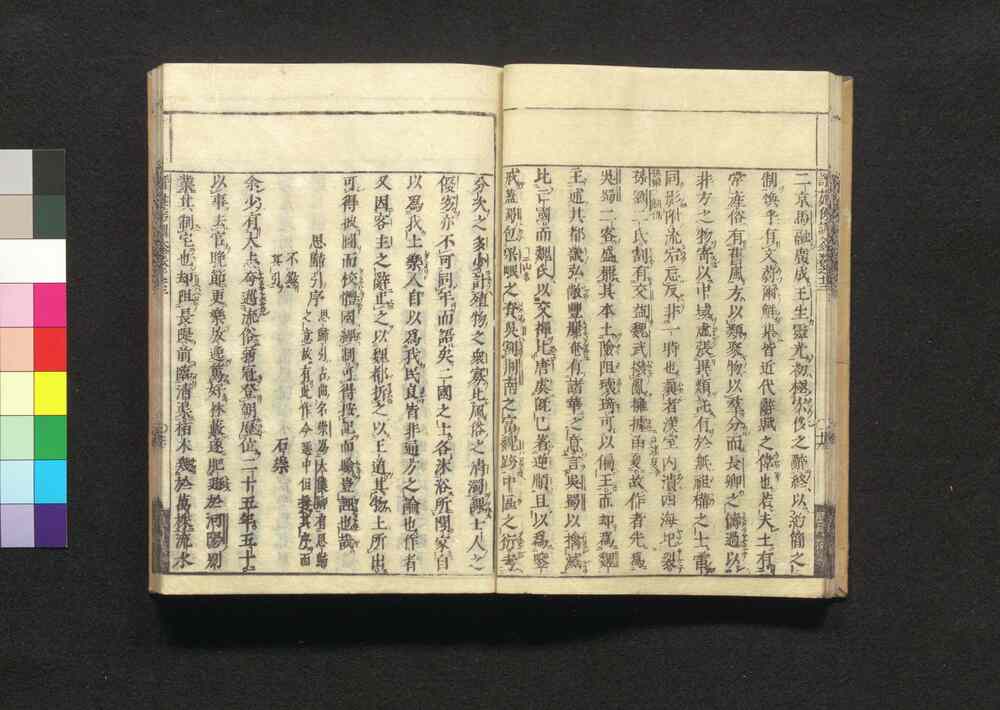 二京馬融廣成王生靈光初極宏侈之辭終以約簡之
制煥乎有文蔚爾鱗集皆近代辭賦之偉也若夫土有
常產俗有舊風方以類聚物以羣分而長卿之儔過以
非方之物寄以中域虛張異類託有於無祖構之士雷
同影附流宕忘反非一時也曩者漢室內潰四海圮裂
孫劉二氏割有交益魏武撥亂擁據函夏故作者先爲
吳蜀二客盛稱其本土險阻瓌琦可以偏王而却爲魏
主述其都畿弘敞豐麗奄有諸華之意言吳蜀以擒滅
比亡國而魏氏以交禪比唐虞旣已著逆順且以爲鑒
戒蓋蜀包梁岷之資吳割荊南之富魏跨中區之衍考
分次之多少計殖物之衆寡比風俗之淸濁課士人之
優劣亦不可同年而語矣二國之士各沐浴所聞家自
以爲我土樂人自以爲我民良皆非通方之論也作者
又因客主之辭正之以魏都折之以王道其物土所出
可得披圖而校體國經制可得按記而驗豈誣也哉
思歸引序
思歸引古曲名崇爲太僕卿有思歸
之意故有此作今選中但錄其序而
不錄
其引
石崇
余少有大志夸邁流俗弱冠登朝歷位二十五年五十
以事去官晚節更樂放逸篤好林藪遂肥遁於河陽別
業其制宅也却阻長隄前臨淸渠栢木幾於萬株流水